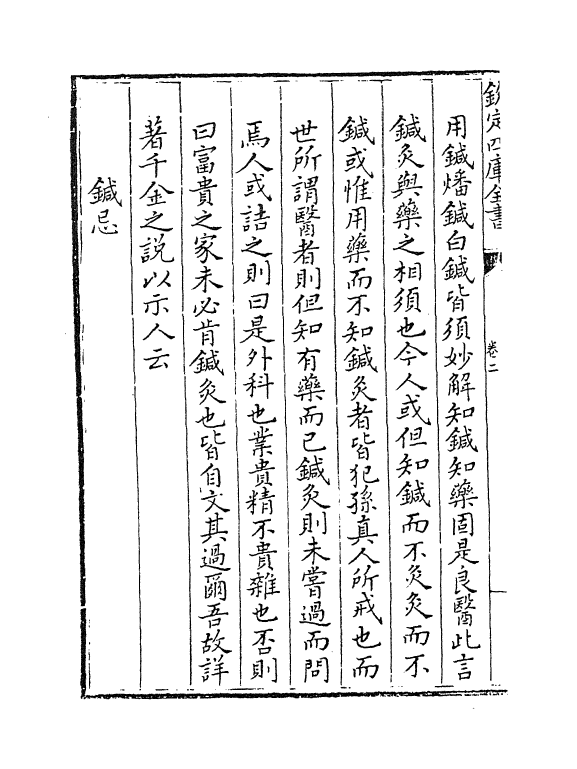 欽定四庫全書
卷二
用鍼燔鍼白鍼皆須妙解知鍼知藥固是良醫此言
鍼灸與藥之相須也今人或但知鍼而不灸灸而不
鍼或惟用藥而不知鍼灸者皆犯孫真人所戒也而
世所謂醫者則但知有藥而已鍼灸則未嘗過而問
焉人或詰之則曰是外科也業貴精不貴雜也否則
曰富貴之家未必肯鍼灸也皆自文其過爾吾故詳
著千金之說以示人云
鍼忌